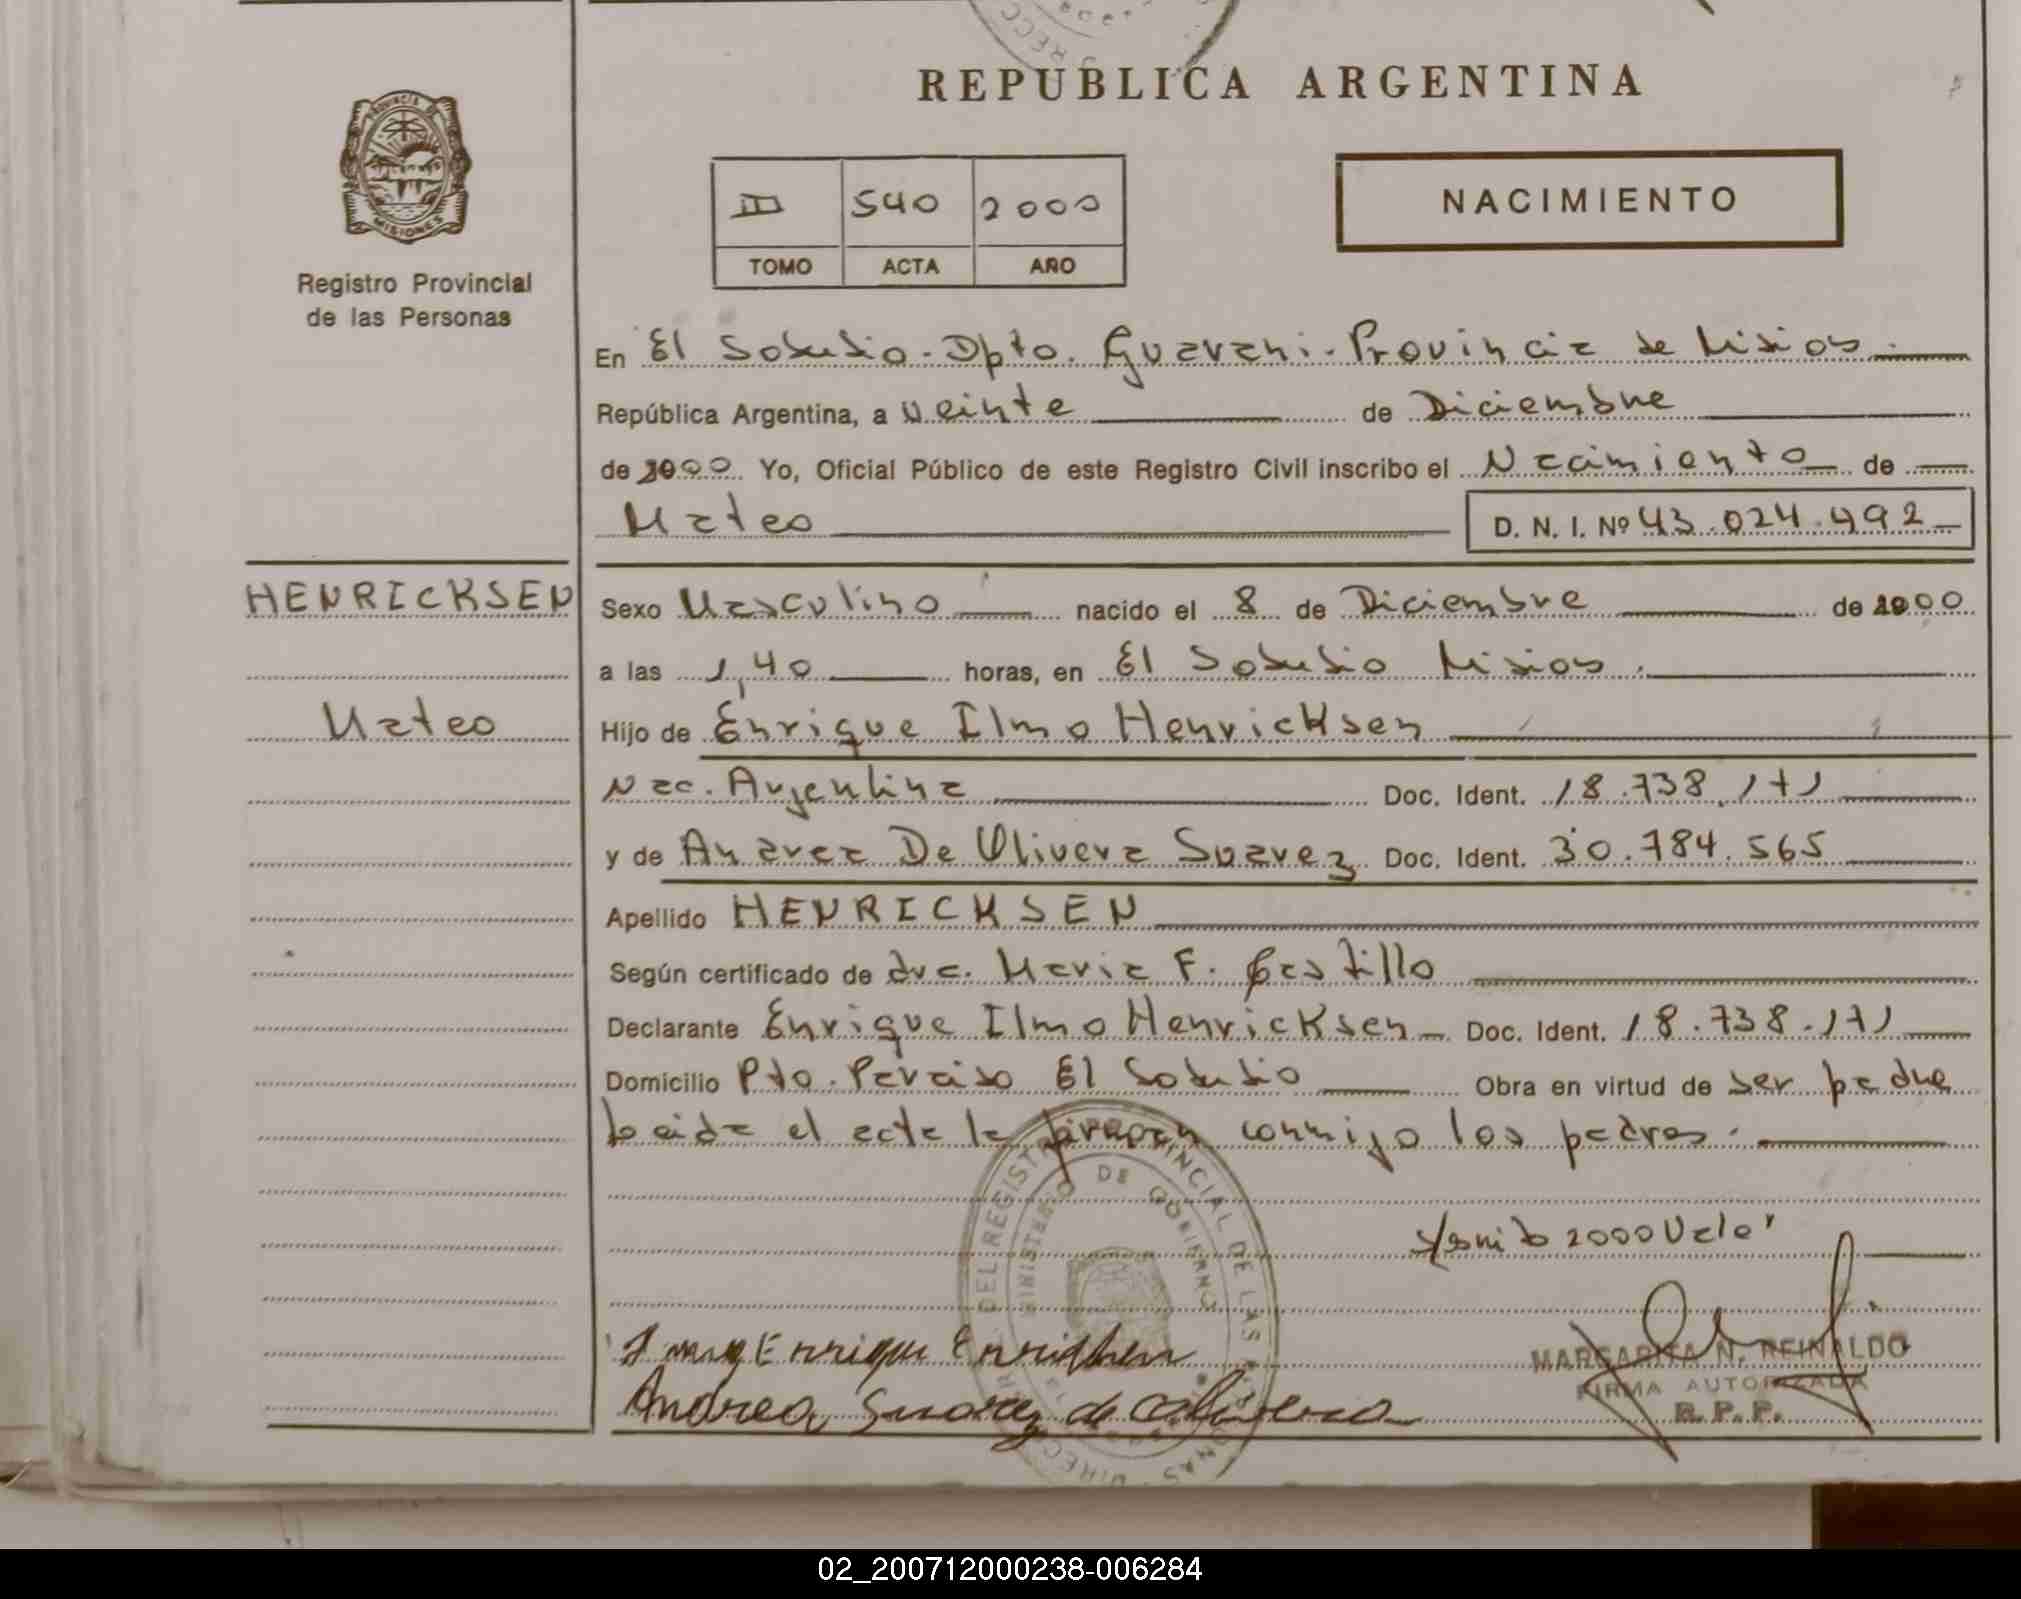 REPUBLICA ARGENTINA
PROVINCIA DE
MISIONES
Registro Provincial
de las Personas
III 540 2000
TOMO ACTA AÑO
NACIMIENTO
En El Soberbio - Dpto. Guarani - Provincia de Misiones
República Argentina, a veinte de Diciembre
de 2000 Yo, Oficial Público de este Registro Civil inscribo el Nacimiento de
Mateo D. N. I. Nº 43.024.492
HENRICKSEN
Mateo
Sexo Masculino nacido el 8 de Diciembre de 2000
a las 1,40 horas, en El Soberbio Misiones.
Hijo de Enrique Ilmo Henricksen
Nac. Argentina Doc. Ident. 18.738.171
y de De Olivera Suarez Doc. Ident. 30.784.565
Apellido HENRICKSEN
Según certificado de dra. Maria F. Castillo
Declarante Enrique Ilmo Henricksen Doc. Ident. 18.738.171
Domicilio Pto. Paraiso El Soberbio Obra en virtud de ser padre
Leida el acta la firman conmigo los padres.
2000 Vale
Enrique
Andrea Suarez de
MARGARITA N. REINALDO
FIRMA AUTORIZADA
R. P. P.
DEL REGISTRO PROVINCIAL DE LAS
MINISTERIO DE GOBIERNO
02_200712000238-006284